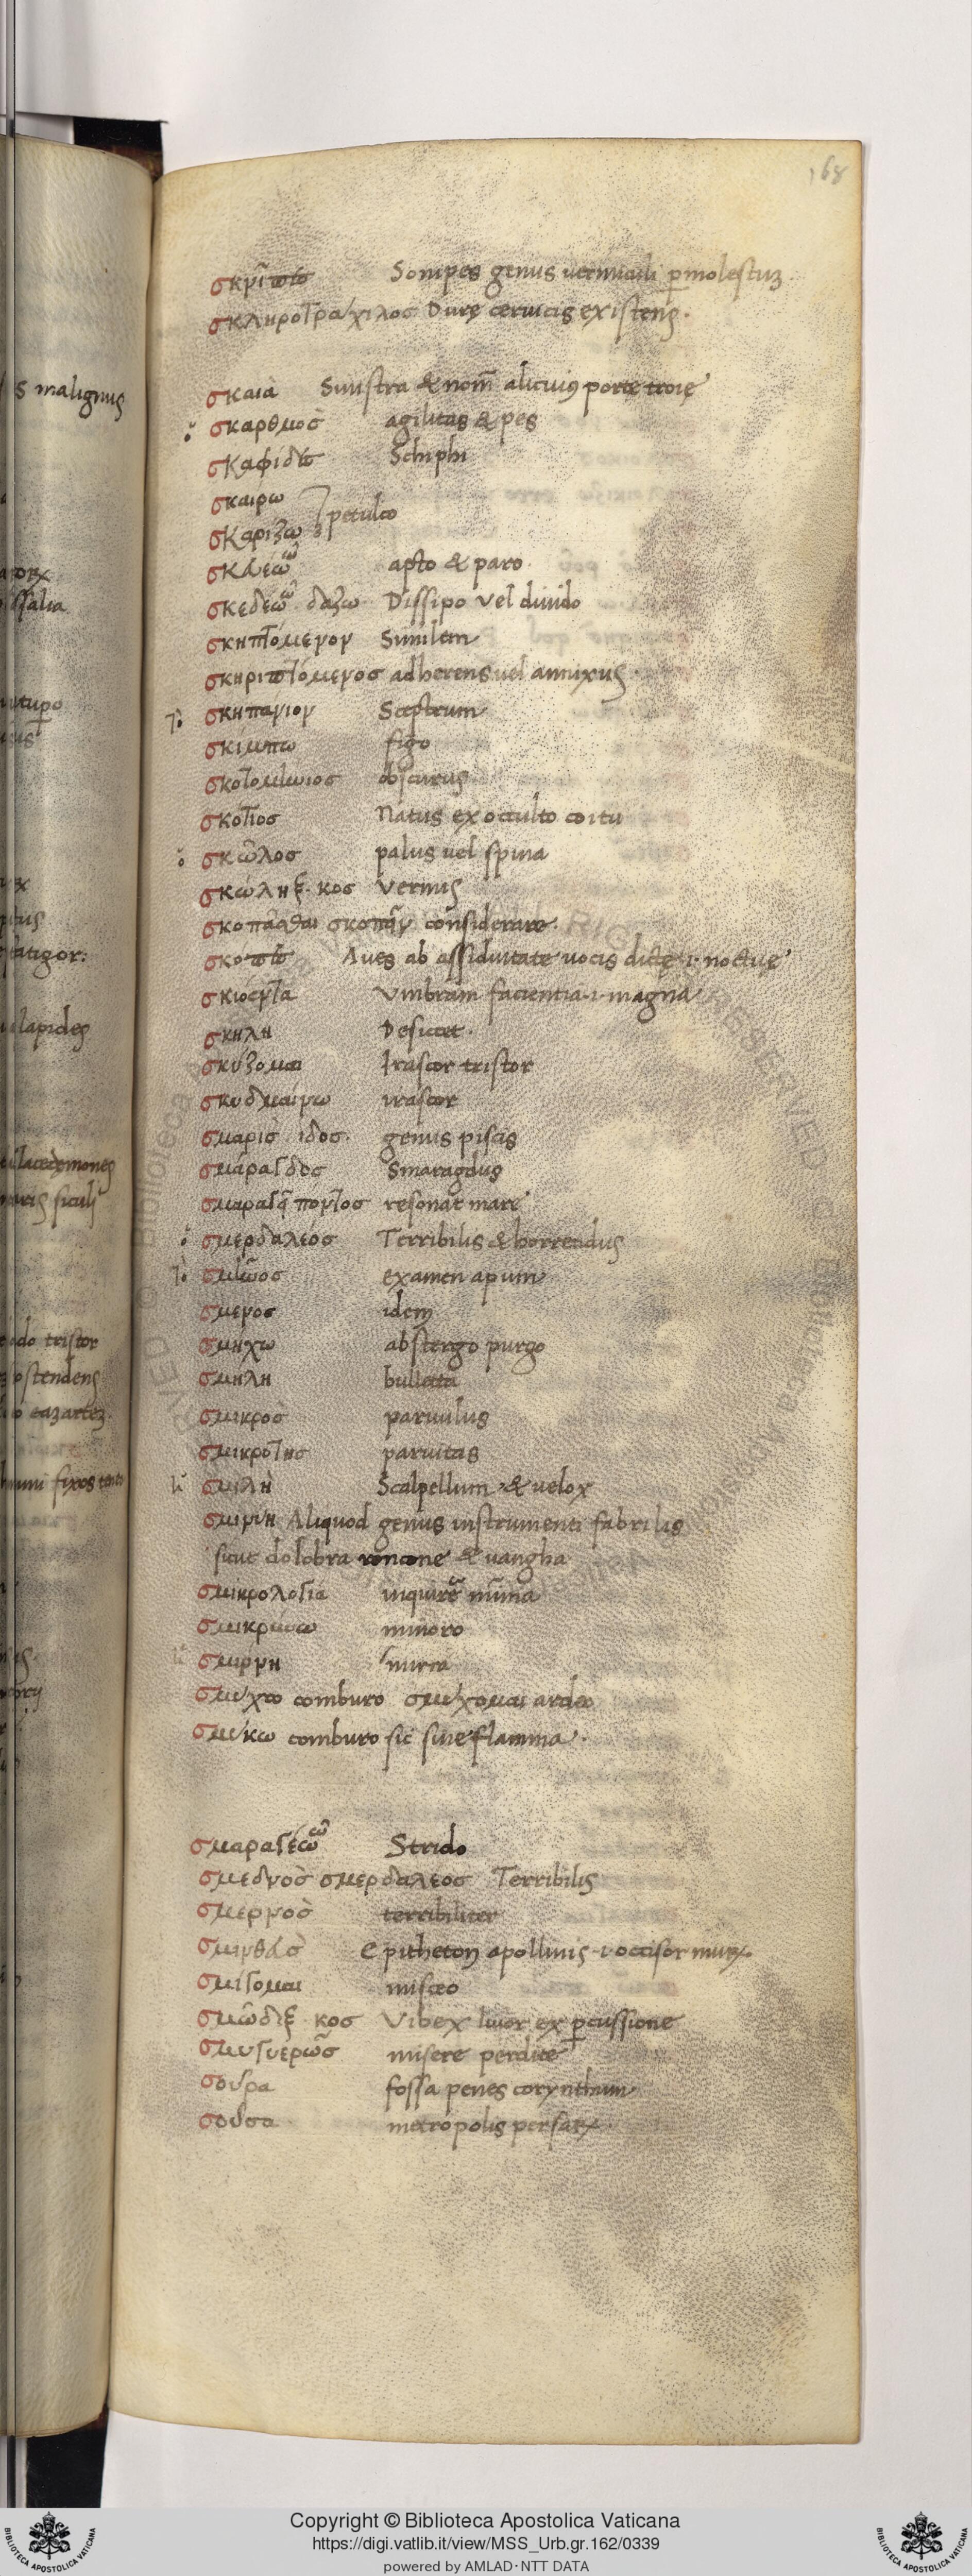 168
σκρῖπσ Sonipes genus uermiculi ꝑmolestuꝫ
σκληροτράχιλοσ Durę ceruicis existens.
σκαιὰ Sinistra & nom̄ alicuiꝰ porte troię
σκαρθμοσ agilitas & pes
σκαφίδεσ Schiphi
σκαιρω
σκαριζω petulco
σκδέω apto & paro
σκεδέω δαζω Dissipo vel diuido
σκηπτόμενον Similem
σκηριπτόμενοσ adherens uel annixus
σκηπανιον Sceptrum
σκιμπω figo
σκοτομήνιοσ obscurus
σκοτιοσ Natus ex occulto coitu
σκῶλοσ palus uel spina
σκώληξ. κοσ Vermis
σκοπᾶσθαι σκοπᾶν considerare.
σκόπεσ Aues ab assiduitate uocis dictę .i. noctuę
σκιοεντα Vmbram facientia .i. magna
σκηλη Desiccet.
σκύζομαι Irascor tristor
σκυδμαίνω irascor
σμαρισ ιδοσ. genus piscis
σμάραγδοσ Smaragdus
σμαραγᾷ ποντοσ resonat mare
σμερδαλεόσ Terribilis & horrendus
σμῆνοσ examen apum
σμενοσ idem
σμηχω abstergo purgo
σμηλη bulletta
σμικροσ paruulus
σμικροτησ paruitas
σμιλη Scalpellum & velox
σμινύη Aliquod genus instrumenti fabrilis
sicut dolobra roncone & uangha
σμικρολογια inquirē minima
σμικρύνω minoro
σμυρνη mirra
σμύχω comburo σμύχομαι ardeo
σμύκω comburo sic sine flamma.
σμαραγέω Strido
σμεδνοσ σμερδαλεοσ Terribilis
σμερνοσ terribiliter
σμινθὰσ Epitheton apollinis .i. occisor murꝝ
σμίγομαι misceo
σμῶδιξ κοσ Vibex liuor ex ꝑcussione
σμυγερῶσ misere perdite
σουρα fossa penes corynthum
σουσα metropolis persarꝝ
Copyright © Biblioteca Apostolica Vaticana
https://digi.vatlib.it/view/MSS_Urb.gr.162/0339
powered by AMLAD·NTT DATA